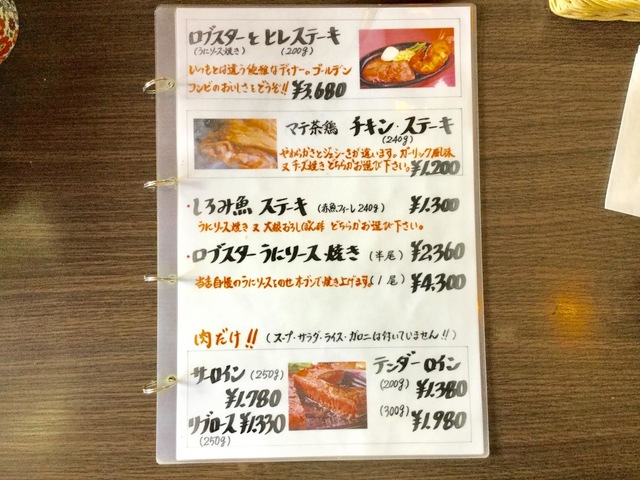 ロブスターと ヒレステーキ
(うにソース焼き) (200g)
いつもとは違う優雅なディナー。ゴールデン
コンビのおいしさをどうぞ!! ¥3,680
マテ茶鶏 チキン・ステーキ
(240g)
やわらかさとジューシーさが違います。ガーリック風味
又チーズ焼きどちらかお選び下さい。¥1,200
・しろみ魚 ステーキ (赤魚フィーレ240g) ¥1,300
うにソース焼き 又 大根おろしぽん酢 どちらかお選び下さい。
・ロブスターうにソース焼き (半尾) ¥2,360
当店自慢のうにソースをのせオーブンで焼き上げます。(1尾) ¥4,300
肉だけ!! (スープ・サラダ・ライス・ガロニは付いていません!!)
サーロイン (250g)
¥1,780
リブロース ¥1,330
(250g)
テンダーロイン
(200g) ¥1,380
(300g) ¥1,980